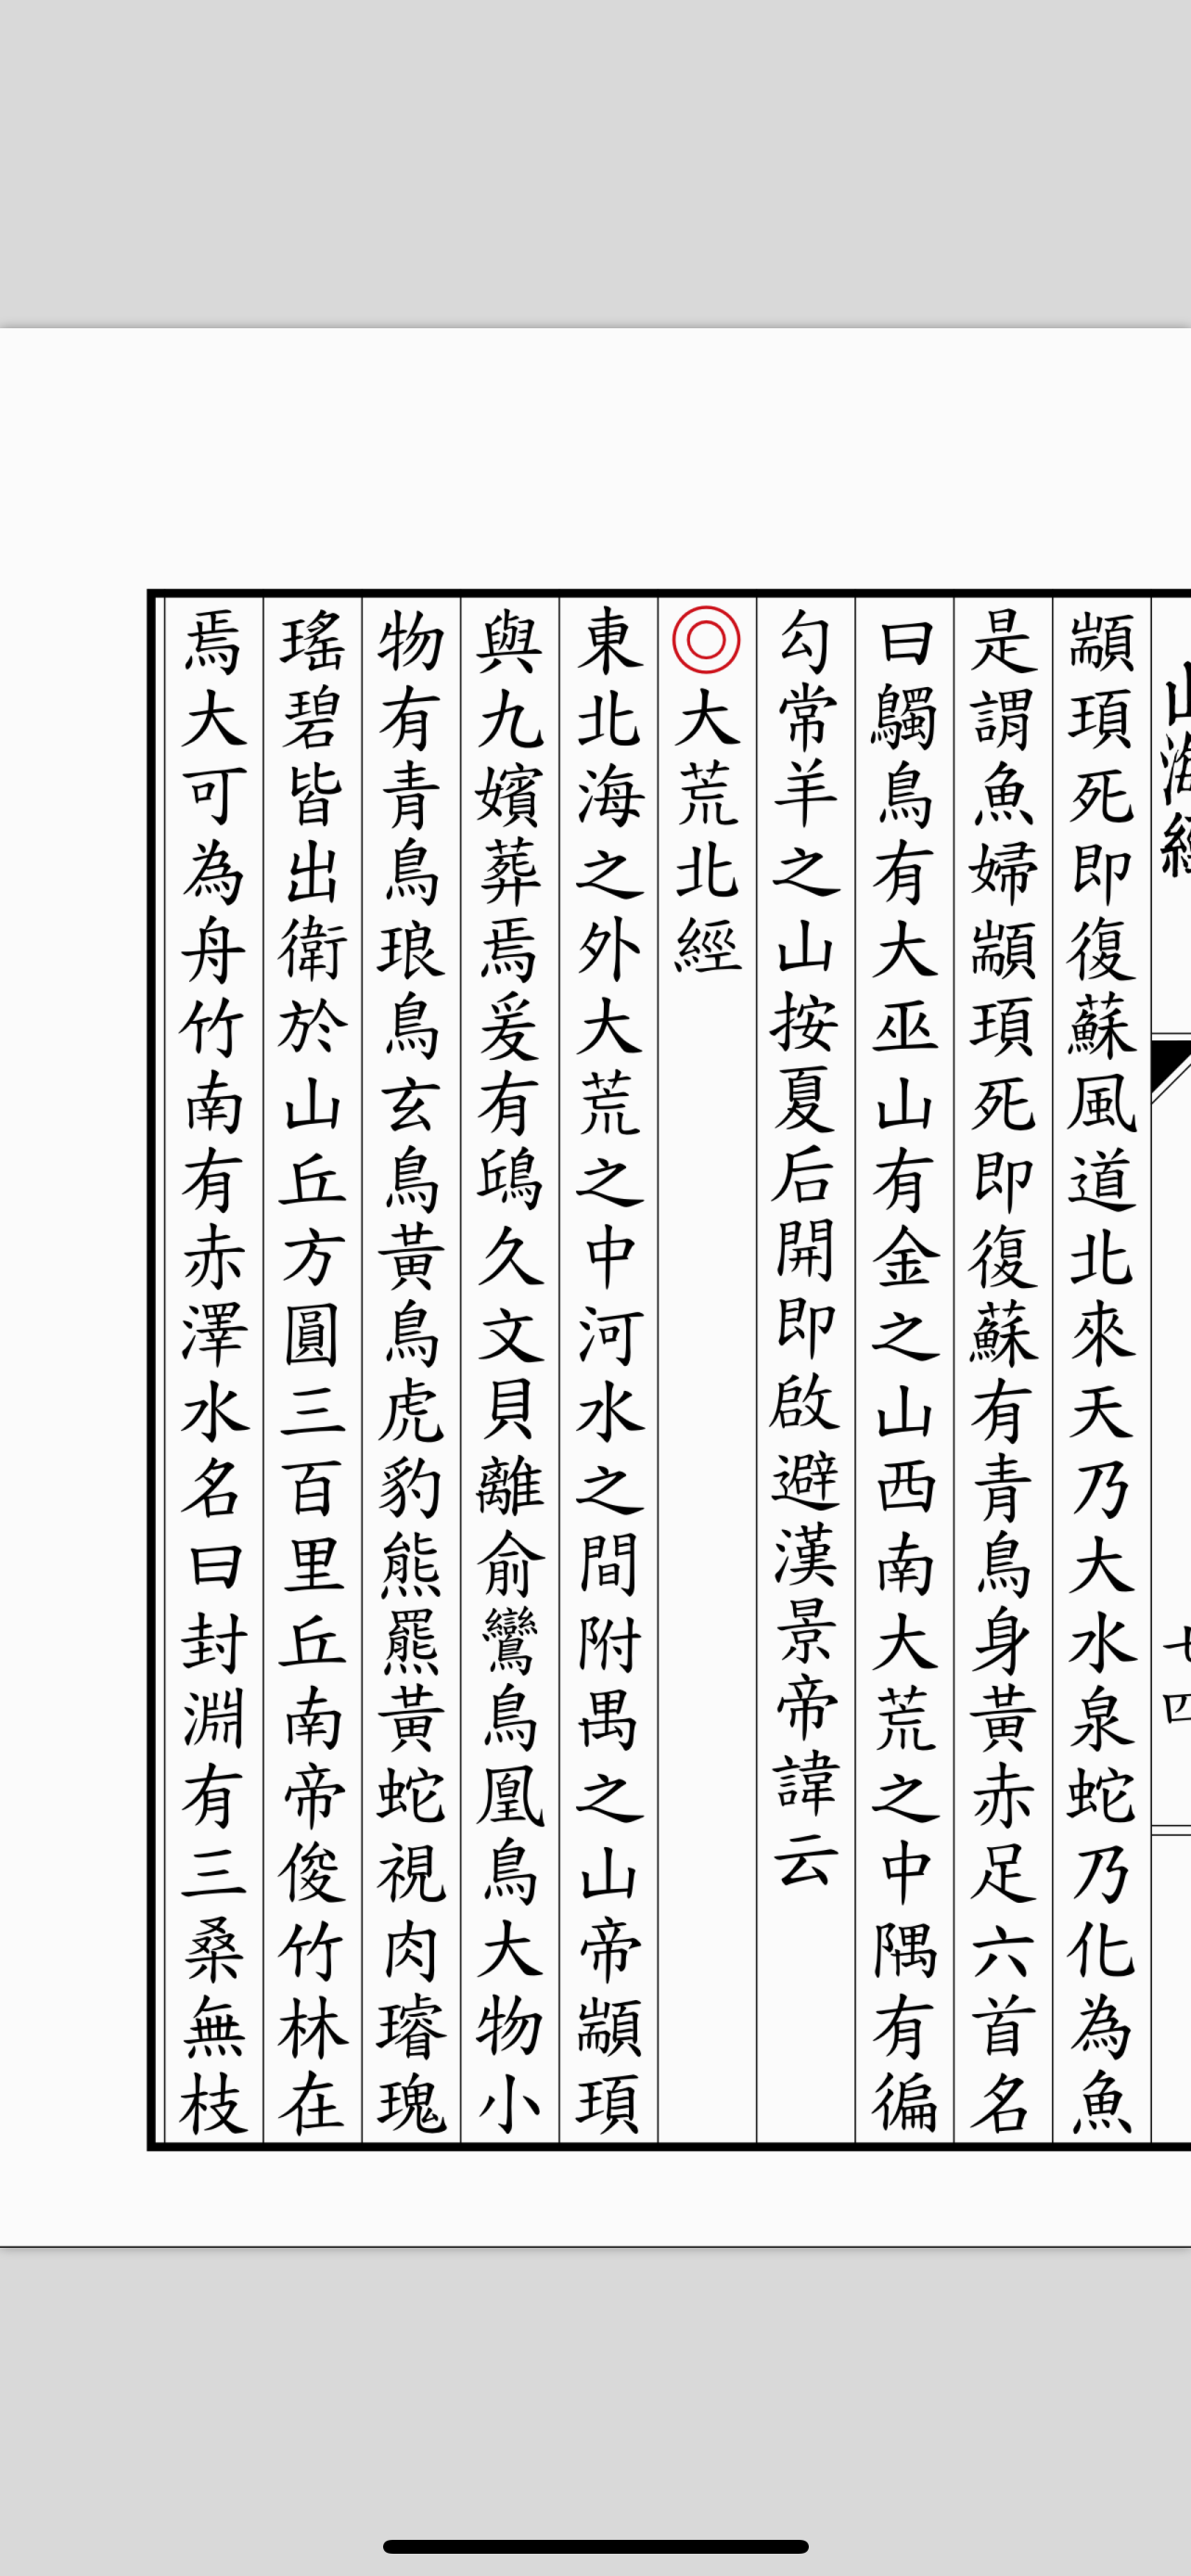 山海經
七四
顓頊死即復蘇風道北來天乃大水泉蛇乃化為魚
是謂魚婦顓頊死即復蘇有青鳥身黃赤足六首名
曰鸀鳥有大巫山有金之山西南大荒之中隅有徧
勾常羊之山按夏后開即啟避漢景帝諱云
◎大荒北經
東北海之外大荒之中河水之間附禺之山帝顓頊
與九嬪葬焉爰有鴟久文貝離俞鸞鳥凰鳥大物小
物有青鳥琅鳥玄鳥黃鳥虎豹熊羆黃蛇視肉璿瑰
瑤碧皆出衛於山丘方圓三百里丘南帝俊竹林在
焉大可為舟竹南有赤澤水名曰封淵有三桑無枝